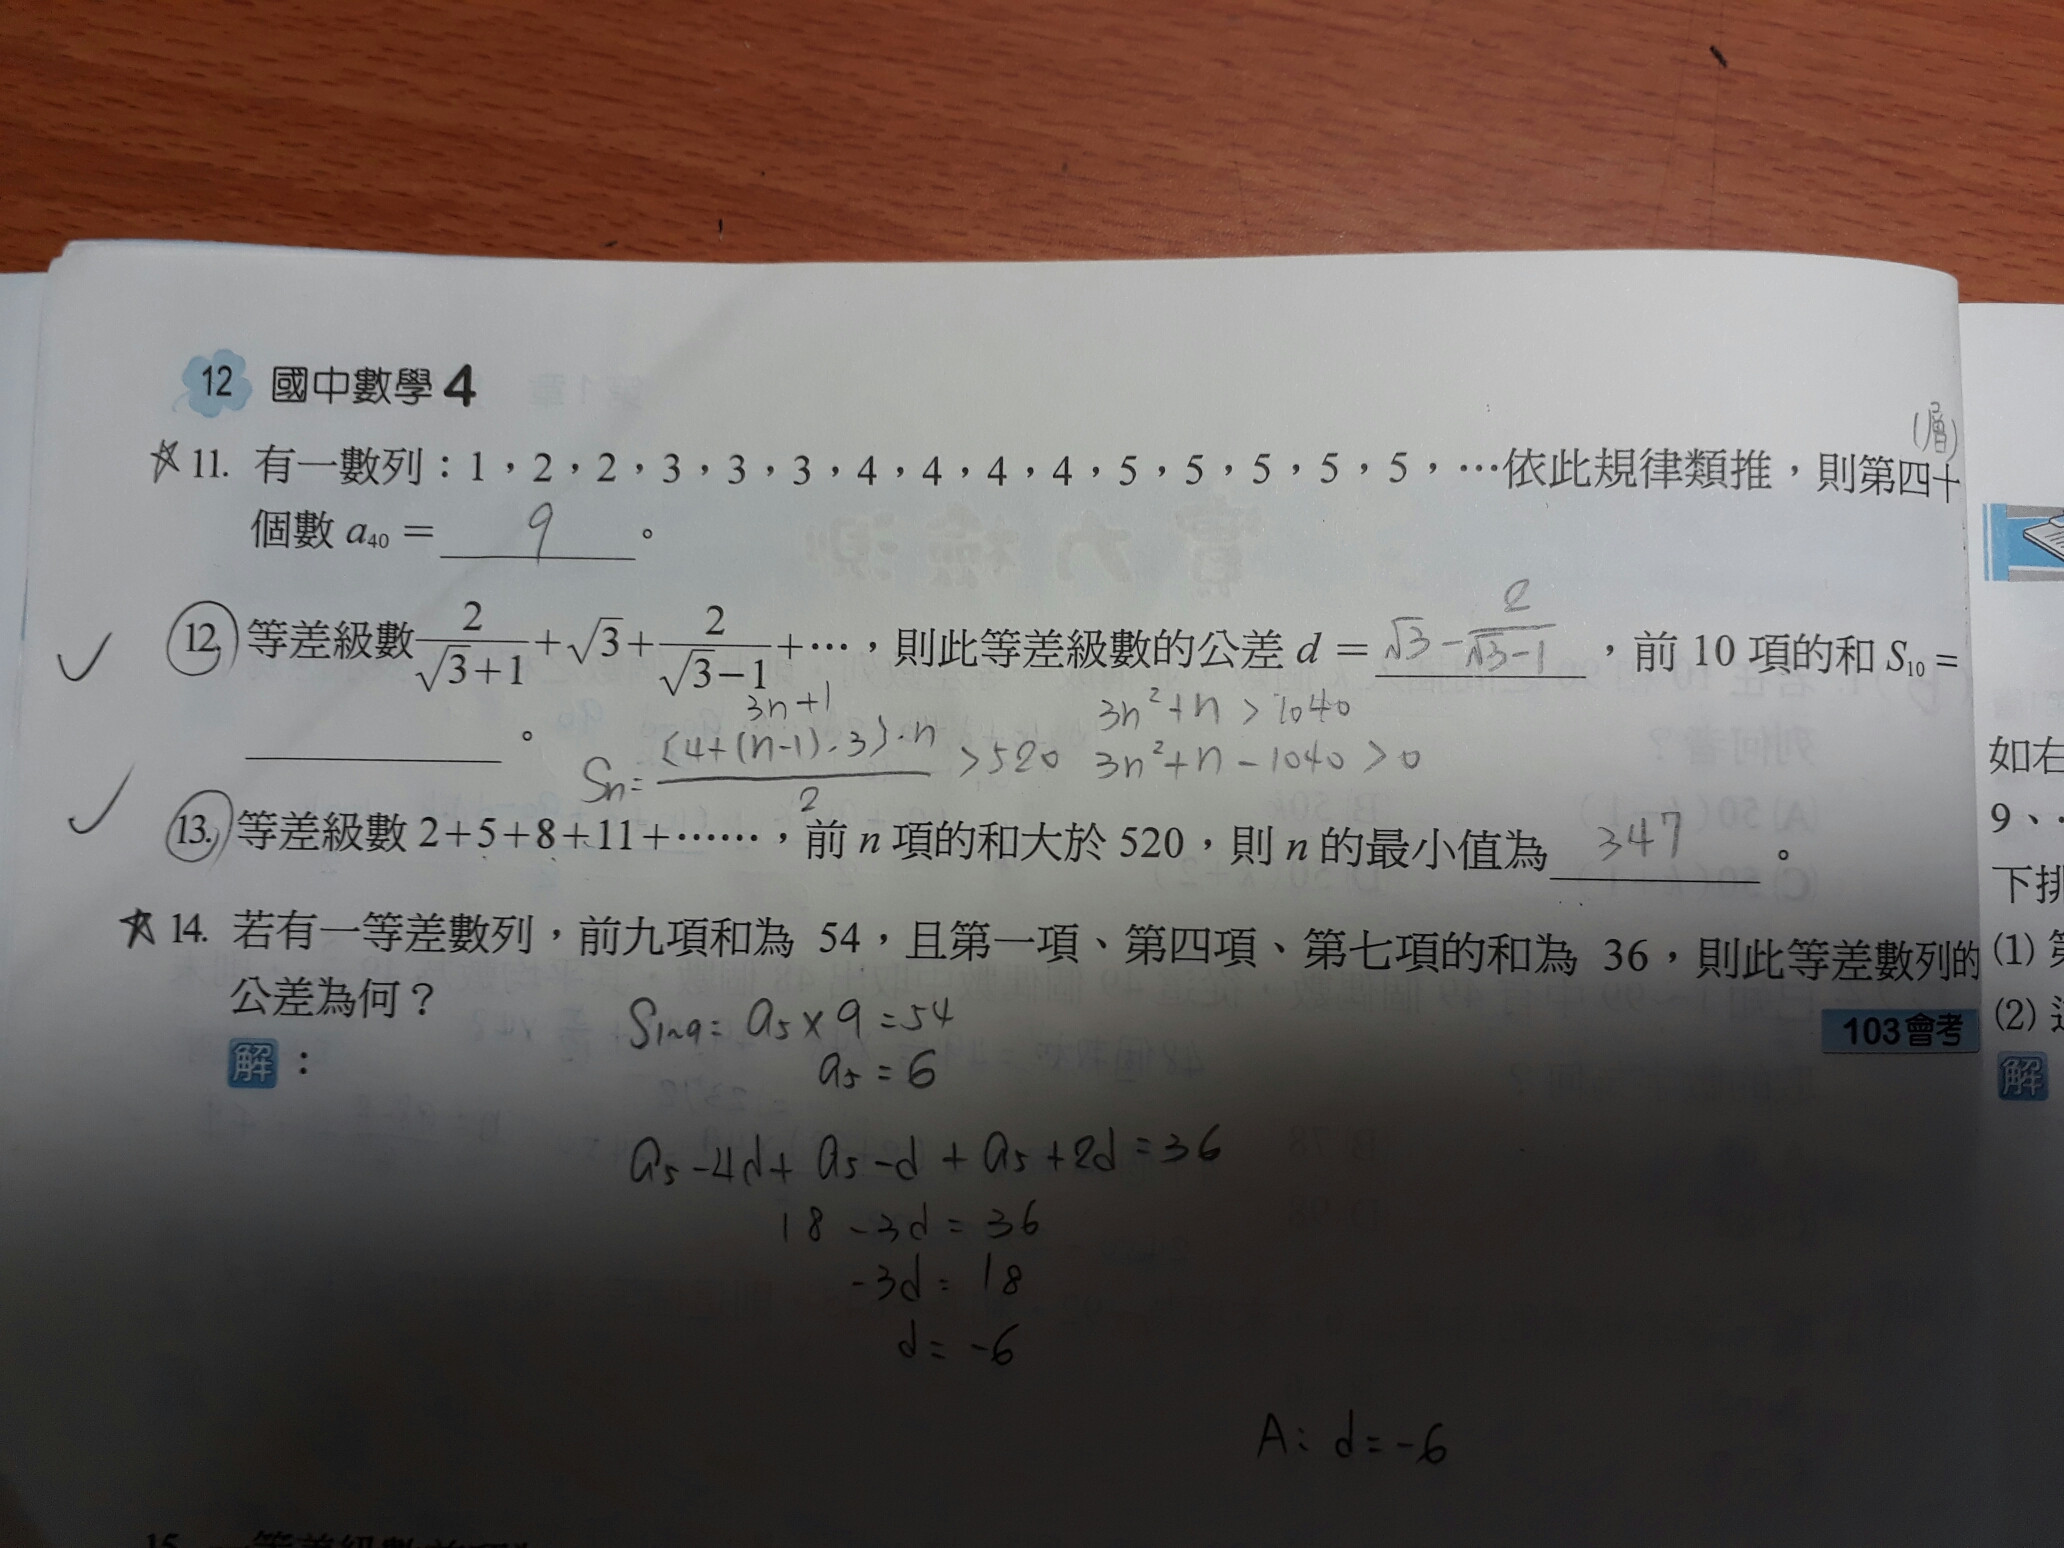 12 國中數學4
(層)
☆11. 有一數列：1，2，2，3，3，3，4，4，4，4，5，5，5，5，5，…依此規律類推，則第四十
個數 a₄₀ = 9 。
✓ 12. 等差級數 2/(√3+1) + √3 + 2/(√3−1) + …，則此等差級數的公差 d = √3 − 2/(√3−1) ，前 10 項的和 S₁₀ =
。
3n+1
Sn = {4+(n-1)·3}·n / 2 > 520
3n²+n > 1040
3n²+n-1040 > 0
✓ 13. 等差級數 2+5+8+11+……，前 n 項的和大於 520，則 n 的最小值為 347 。
☆14. 若有一等差數列，前九項和為 54，且第一項、第四項、第七項的和為 36，則此等差數列的
公差為何？
103會考
解：
S1~9 = a₅ × 9 = 54
a₅ = 6
a₅-4d + a₅-d + a₅+2d = 36
18 -3d = 36
-3d = 18
d = -6
A: d = -6
如右
9、
下排
(1)
(2)
解